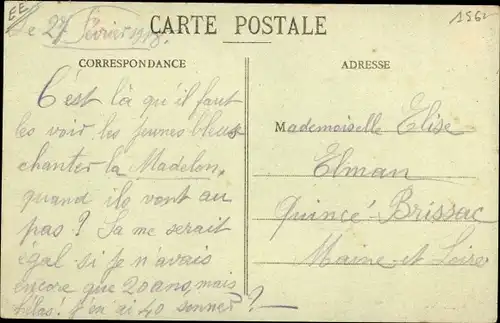 EE
1562
CARTE POSTALE
Le 27 février 1918.
CORRESPONDANCE
C'est là qu'il faut
les voir les jeunes bleus
chanter la Madelon,
quand ils vont au
pas? Ça me serait
égal si je n'avais
encore que 20 ans, mais
hélas! j'en ai 40 sonner?
ADRESSE
Mademoiselle Elise
Elman
Quincé-Brissac
Maine et Loire